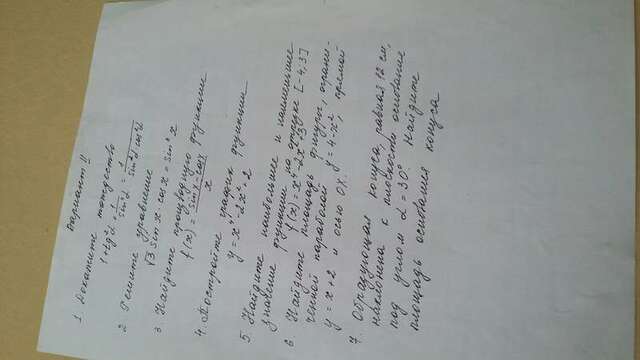 Вариант II
1 Докажите тождество
1 + tg²α + 1/sin²α = 1/(sin²α cos²α)
2 Решите уравнение
√3 sin x cos x = sin² x
3 Найдите производную функции
f(x) = sin x · cos x / x
4. Постройте график функции
y = x⁴ - 2x² + 2
5. Найдите наибольшее и наименьшее
значение функции на отрезке [-4, 3]
f(x) = x⁴ - 2x² + 3
6 Найдите площадь фигуры, ограни-
ченной параболой y = 4 - x², прямой
y = x + 2 и осью OX.
7. Образующая конуса, равная 12 см,
наклонена к плоскости основания
под углом α = 30°. Найдите
площадь основания конуса